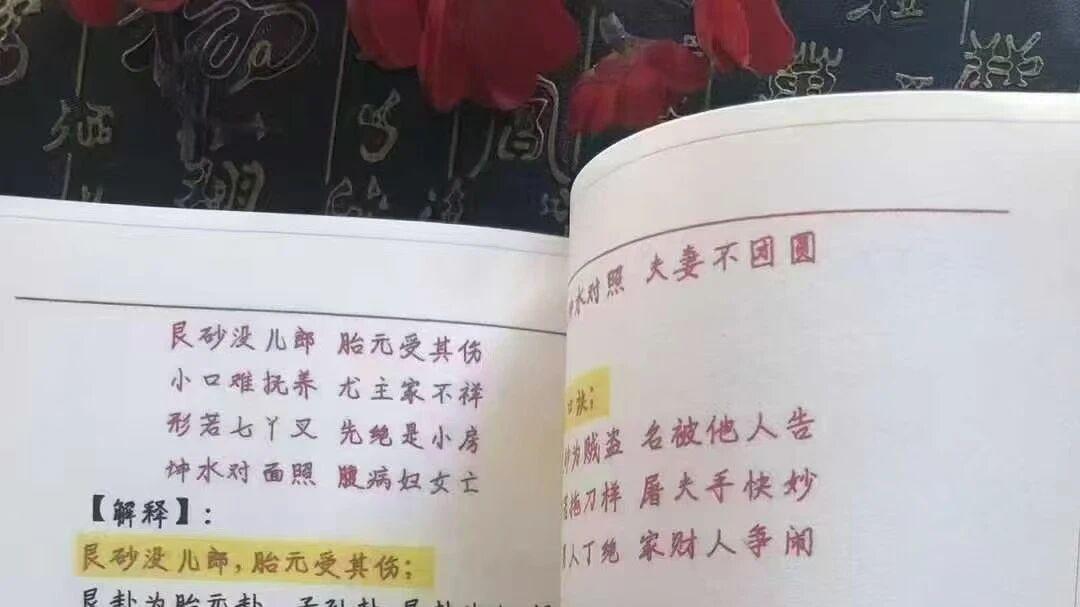 艮砂没儿郎 胎元受其伤
小口难抚养 尤主家不祥
形若七丫叉 先绝是小房
坤水对面照 腹病妇女亡
【解释】：
艮砂没儿郎，胎元受其伤；
艮卦为胎元卦
坤水对照 夫妻不团圆
口诀；
砂为贼盗 名被他人告
拖刀样 屠夫手快妙
人丁绝 家财人争闹